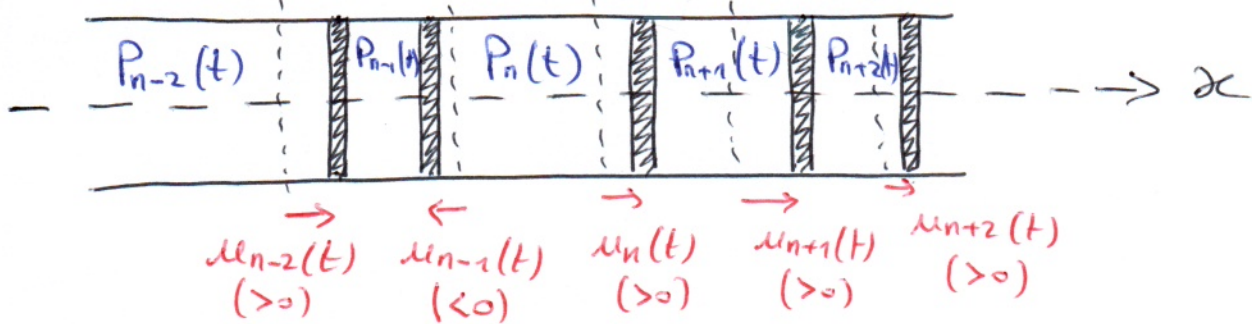 Pn-2(t) Pn-1(t) Pn(t) Pn+1(t) Pn+2(t)
x
un-2(t) un-1(t) un(t) un+1(t) un+2(t)
(>0) (<0) (>0) (>0) (>0)